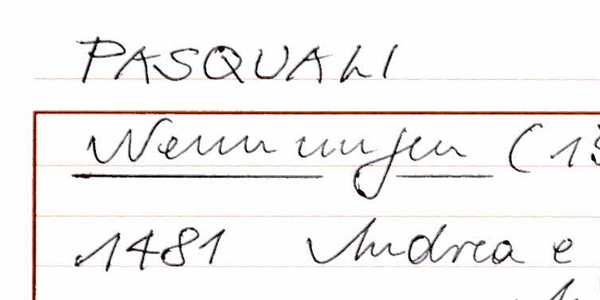 PASQUALI
Nennungen (13
1481 Andrea e